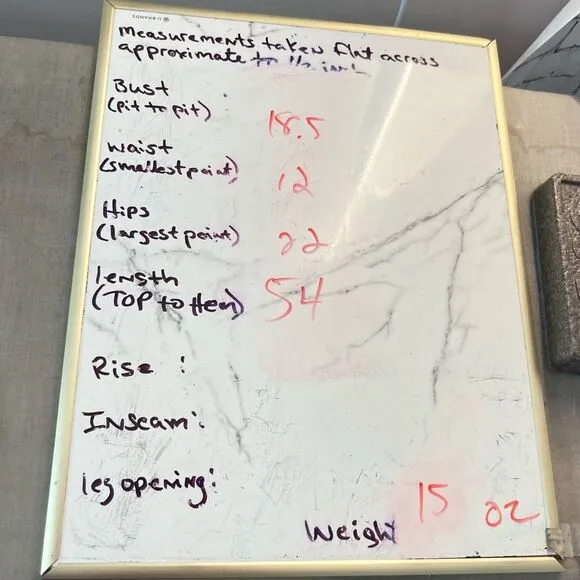 U BRANDS
Measurements taken flat across
approximate to 1/2 inch
Bust
(pit to pit)
18.5
waist
(smallest point)
12
Hips
(largest point)
22
length
(TOP to Hem)
54
Rise :
Inseam:
leg opening:
Weight 15 oz